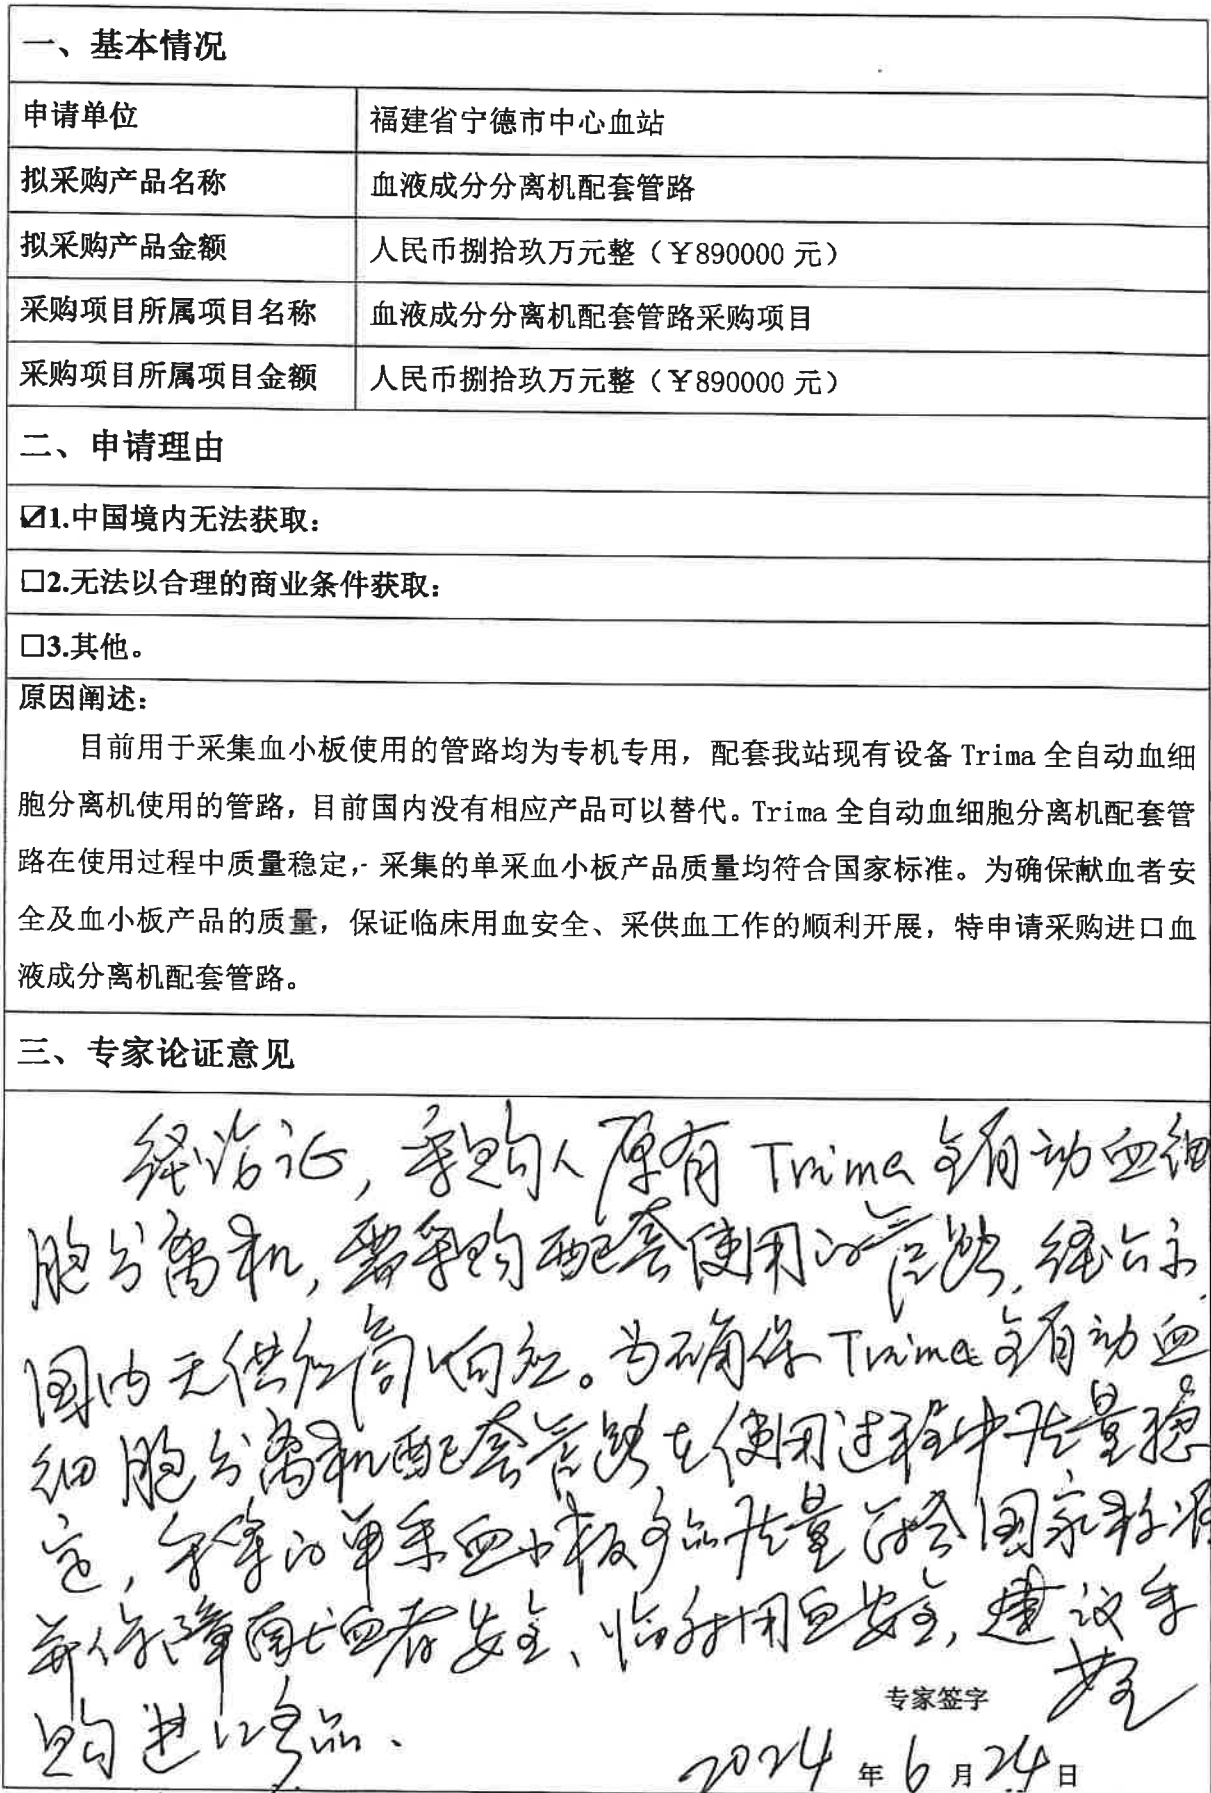 一、基本情况
申请单位 福建省宁德市中心血站
拟采购产品名称 血液成分分离机配套管路
拟采购产品金额 人民币捌拾玖万元整（￥890000 元）
采购项目所属项目名称 血液成分分离机配套管路采购项目
采购项目所属项目金额 人民币捌拾玖万元整（￥890000 元）
二、申请理由
☑1.中国境内无法获取：
□2.无法以合理的商业条件获取：
□3.其他。
原因阐述：
目前用于采集血小板使用的管路均为专机专用，配套我站现有设备 Trima 全自动血细
胞分离机使用的管路，目前国内没有相应产品可以替代。Trima 全自动血细胞分离机配套管
路在使用过程中质量稳定，采集的单采血小板产品质量均符合国家标准。为确保献血者安
全及血小板产品的质量，保证临床用血安全、采供血工作的顺利开展，特申请采购进口血
液成分离机配套管路。
三、专家论证意见
经论证，采购人原有 Trima 全自动血细
胞分离机，需采购配套使用的管路，经公示，
国内无供应商响应。为确保 Trima 全自动血
细胞分离机配套管路在使用过程中质量稳
定，采集的单采血小板产品质量符合国家标准
并保障献血者安全、临床用血安全，建议采
购进口产品。
专家签字
2024 年 6 月 24 日